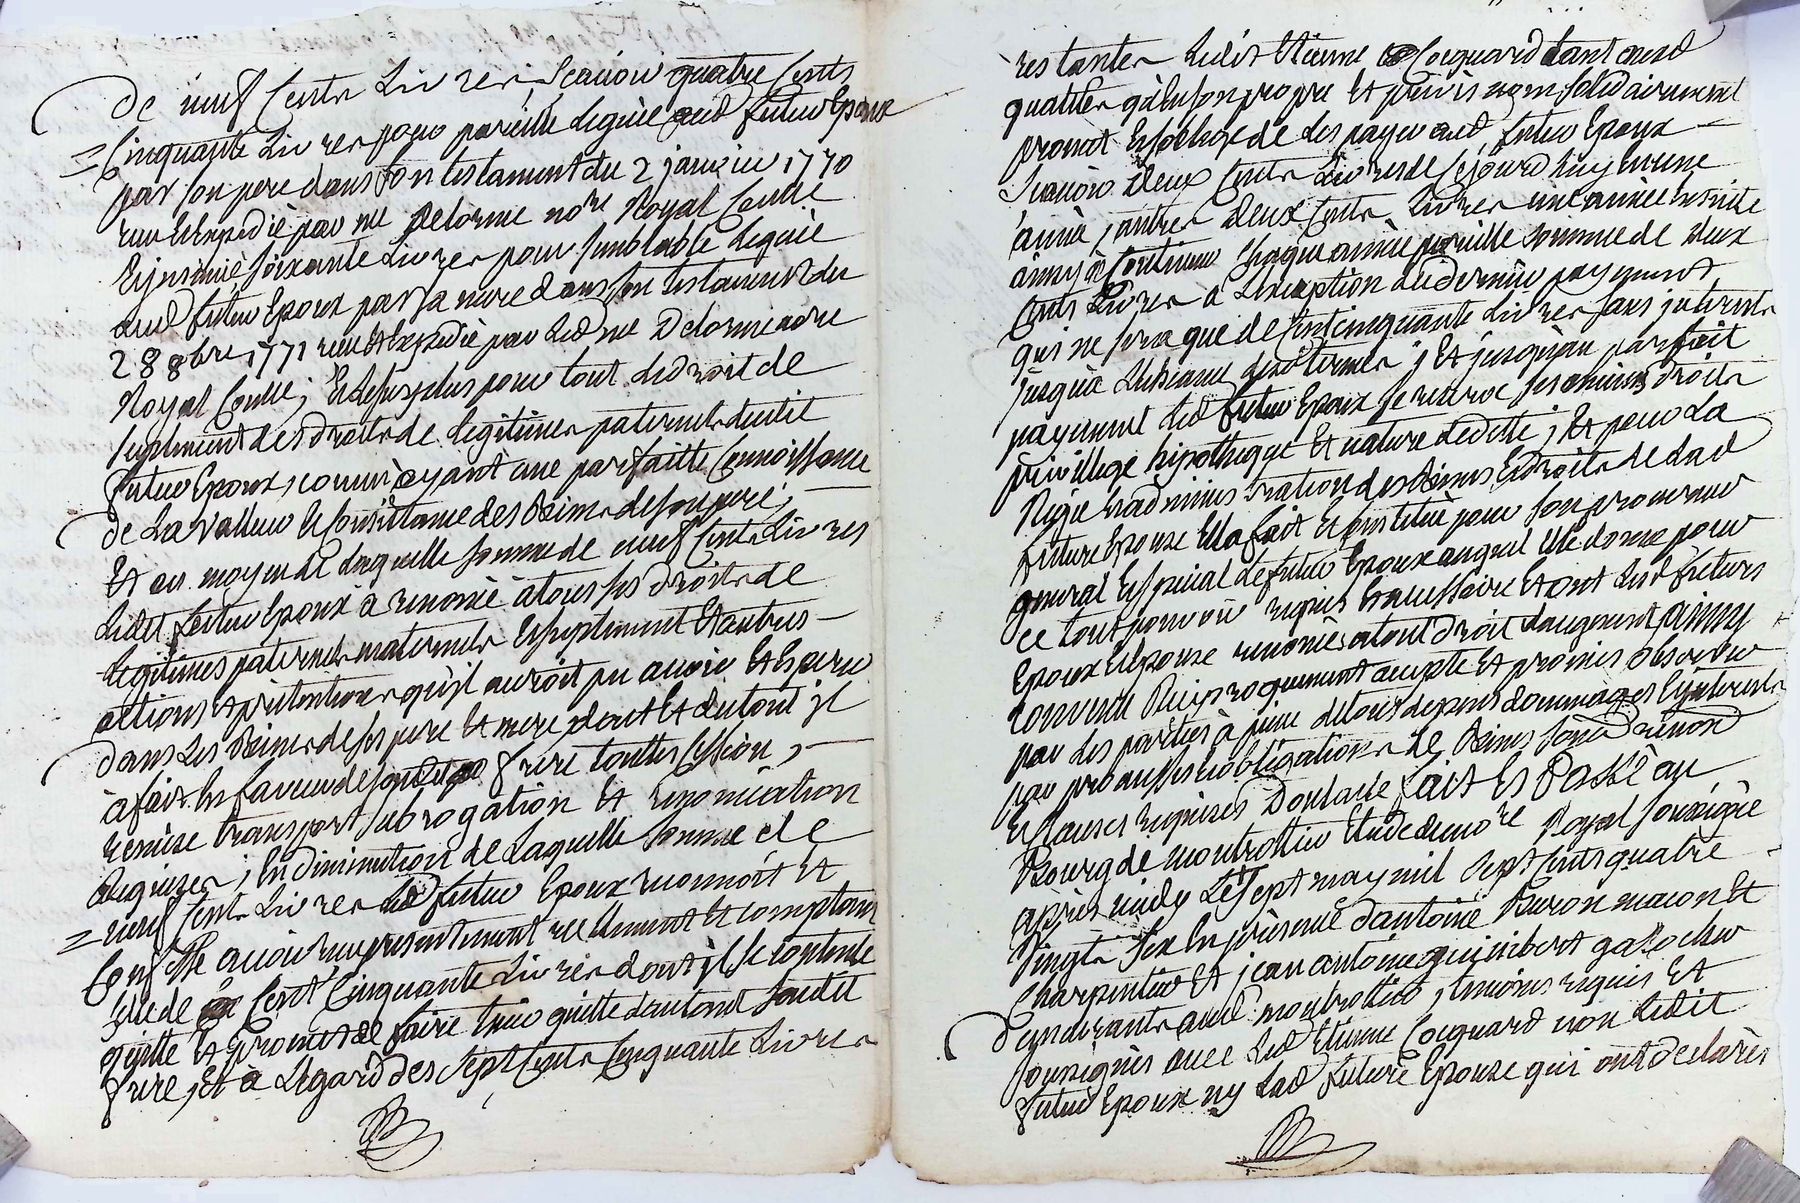 De neuf Cents Livres, Scavoir quatre Cents
Cinquante Livres pour pareille leguée aud futur Epoux
par son pere dans son testament du 2 janvier 1770
reçu et expedié par me Delorme nore Royal
et jnsinué soixante Livres pour semblable leguée
aud futur Epoux par sa mere dans son testament du
28 8bre 1771 reçu et expedié par led me Delorme nore
Royal ; Et le surplus pour tout le droit de
suplement des droits de legitimes paternels dudit
futur Epoux, comme ayant une parfaitte Connoissance
de La valleur et Consistance des Biens de son pere ;
Et au moyen de laquelle somme de neuf Cents Livres
Ledit futur Epoux à renoncé à tous ses droits de
Legitimes paternels maternels et suplement Et autres
actions et pretentions qu'jl auroit pu avoir Et esperer
dans Les Biens de ses pere Et mere dont Et du tout jl
à fait en faveur de sondit frere touttes Cession,
remise transport subrogation Et renonciation
requises ; En diminution de Laquelle somme de
neuf Cents Livres led futur Epoux reconnoit Et
Confesse avoir reçu presentement reellement Et comptant
celle de Cent Cinquante Livres dont jl se contente
quitte Et promet de faire tenir quitte d'autant sondit
frere, Et à Legard des Sept Cents Cinquante Livres
restantes Ledit Etienne Cocquard tant aud
qualités qu'en son propre Et privé nom solidairement
promet et s'oblige de les payer aud futur Epoux
Scavoir Deux Cents Livres de Cejourd'huy En une
année, autres deux Cents Livres une année Ensuite
ainsy à Continuer Chaque année pareille somme de deux
Cents Livres à L'exception du dernier payement
qui ne sera que de Cent cinquante Livres sans jnterets
jusqu'à L'echeance desd termes ; Et jusqu'au parfait
payement led futur Epoux se reserve ses droits
privillege hipotheque Et nature de dette ; Et pour La
Regie et administration des Biens Et Droits de lad
future Epouse Ella fait Et Constitué pour son procureur
general et special le futur Epoux auquel Elle donne pour
ce tout pouvoir requis et necessaire Et ont Lesd futurs
Epoux et Epouse renoncé à tout droit d'augment ainsy
convenu Reciproquement accepté Et promis observer
par Les parties à peine de tous depens dommages Et jnterets
par promesses et obligations de Biens soumd renond
Et Clauses requises Dont acte fait Et Passé au
Bourg de montrottier Etude du nore Royal soussigné
après midy Le Sept may mil sept Cents quatre
Vingts Six En présence d'antoine Buron macon Et
Charpentier Et jean antoine guinibert galocher
Demeurants aud montrottier, temoins requis Et
soussignés avec Led Etienne Cocquard non Ledit
futur Epoux ny Lad future Epouse qui ont declarés